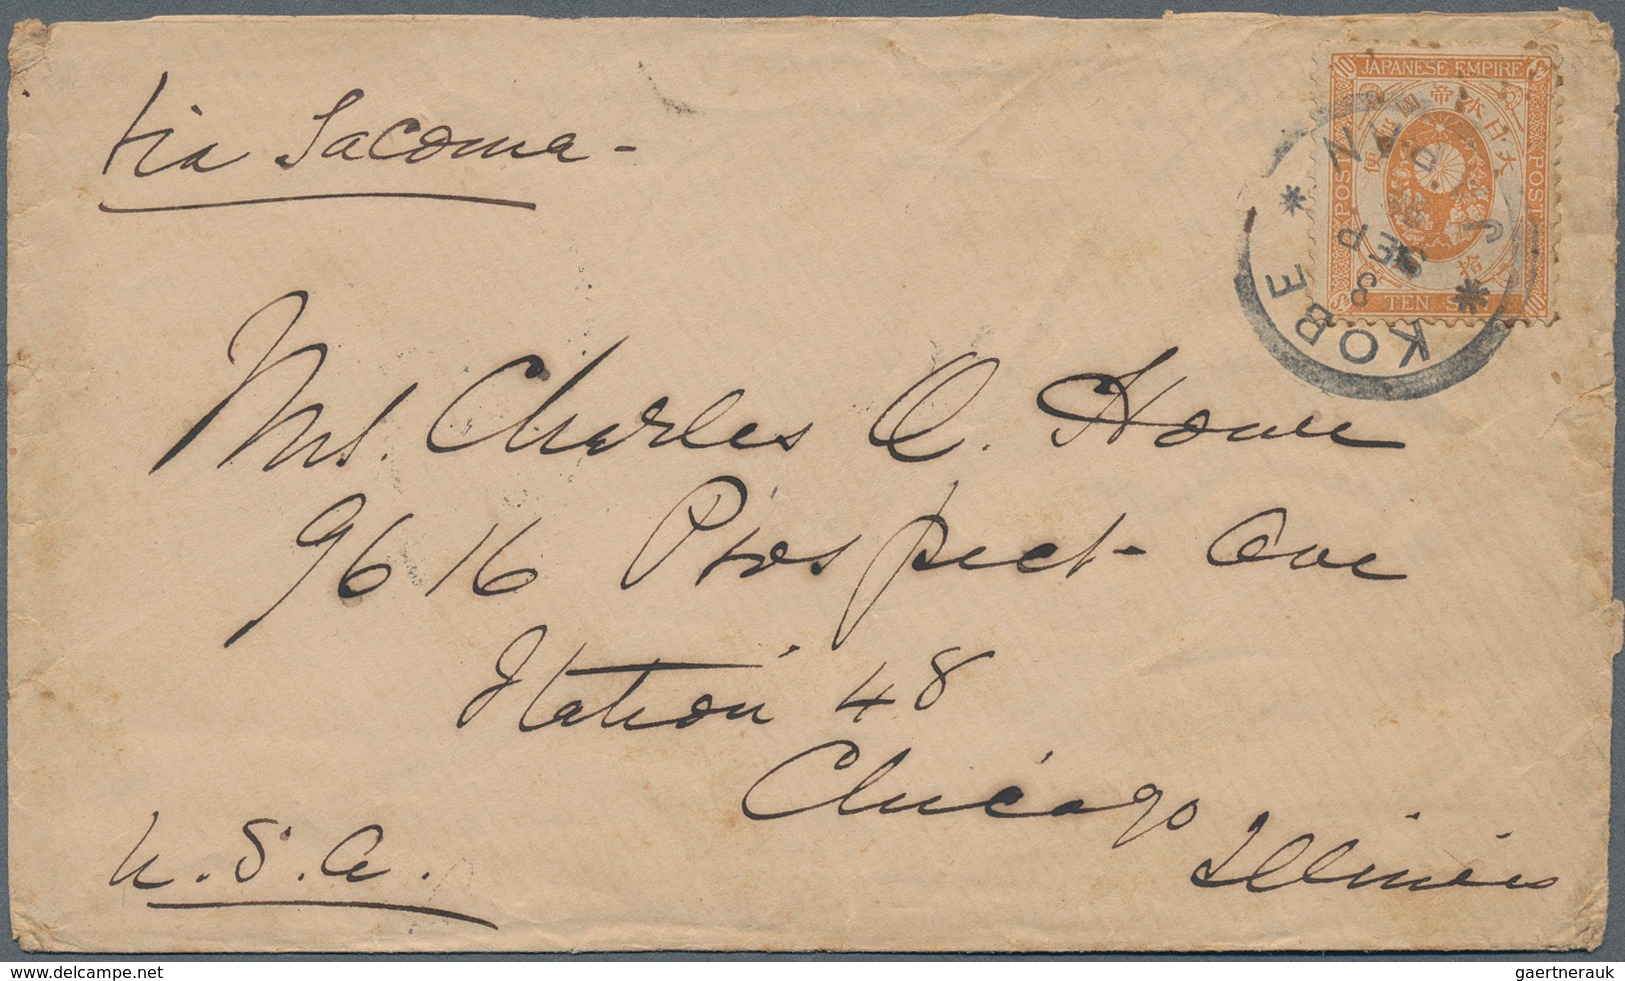 via Tacoma -
JAPANESE EMPIRE
大日本帝国郵便
POST
POST
拾
TEN SEN
KOBE
JAPAN
8
SEP
Mrs. Charles O. Howe
9616 Prospect Ave
Station 48
Chicago
Illinois
U.S.A.
www.delcampe.net
gaertnerauk